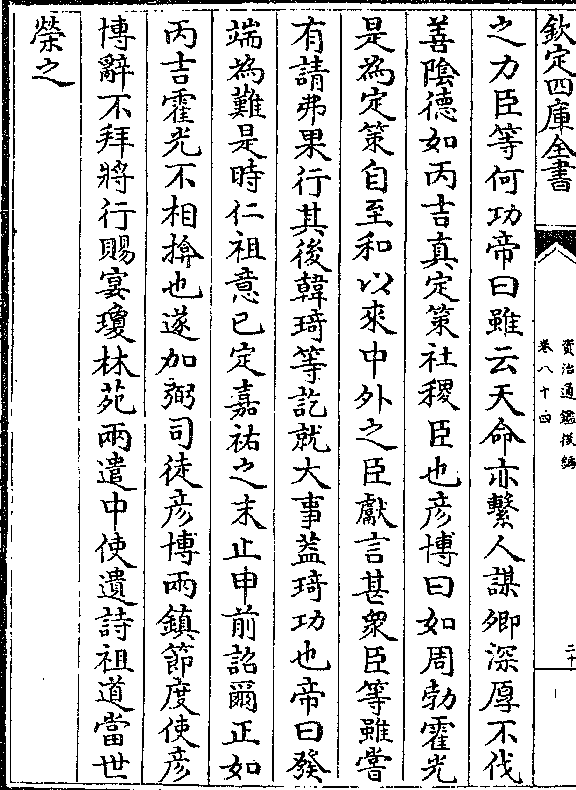 欽定四庫全書
資治通鑑後編
卷八十四
二十一
之力臣等何功帝曰雖云天命亦繫人謀卿深厚不伐
善陰德如丙吉真定策社稷臣也彦博曰如周勃霍光
是為定策自至和以來中外之臣獻言甚衆臣等雖嘗
有請弗果行其後韓琦等訖就大事葢琦功也帝曰發
端為難是時仁祖意已定嘉祐之末止申前詔爾正如
丙吉霍光不相揜也遂加弼司徒彦博兩鎮節度使彦
博辭不拜將行賜宴瓊林苑兩遣中使遺詩祖道當世
榮之